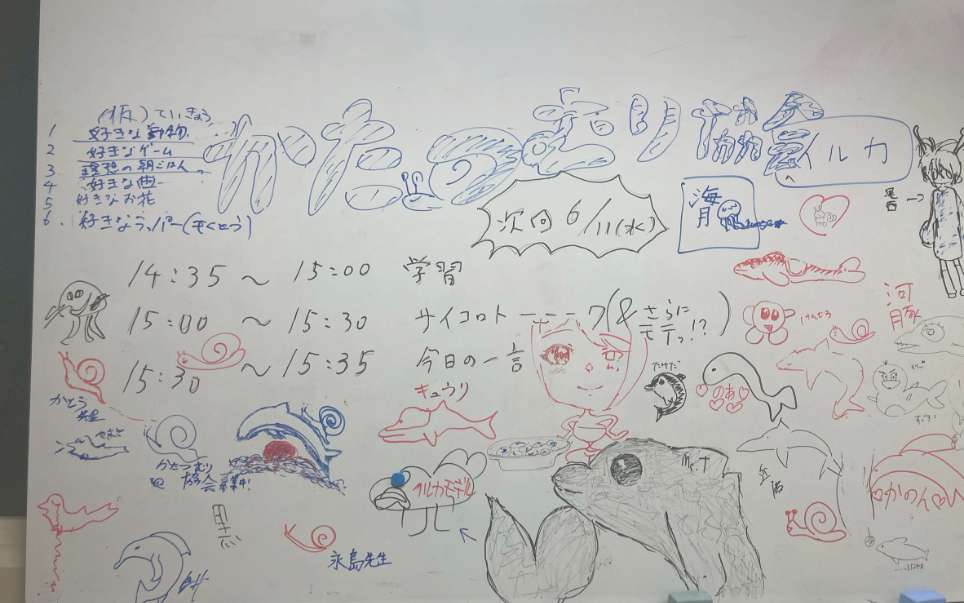 (仮)ていきょう
1 好きな動物
2 好きなゲーム
3 理想の朝ごはん
4 好きな曲
5 好きなお花
6. 好きなラッパー(もくとう)
かたつむり協会
イルカ
次回 6/11(水)
海月
14:35 〜 15:00 学習
15:00 〜 15:30 サイコロトーーーク(&さらにモテっ!?)
15:30 〜 15:35 今日の一言
河豚
キュウリ
たけだ
のあ
かとう先生
かたつむり協会
イルカモデル
永島先生
かのん